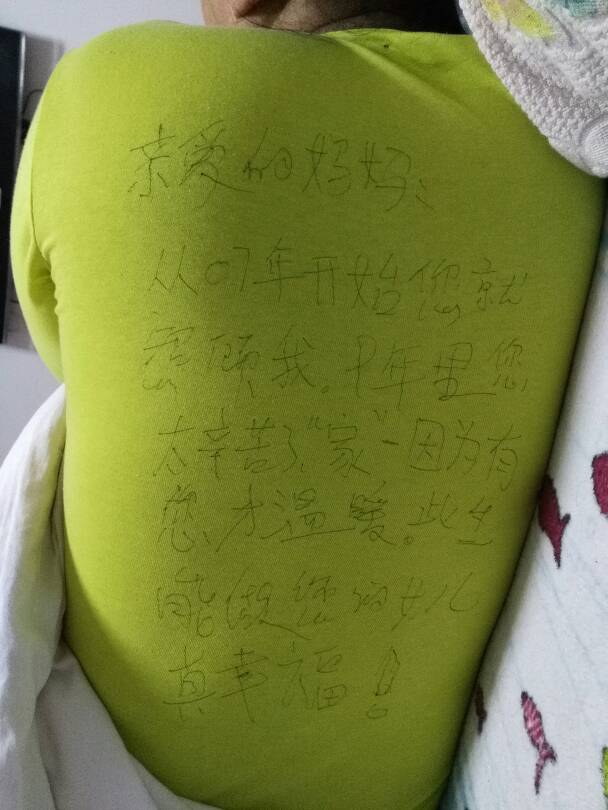 亲爱的妈妈:
从07年开始您就
照顾我。十年里您
太辛苦了"家"一因为有
您才温暖。此生
能做您的女儿
真幸福!